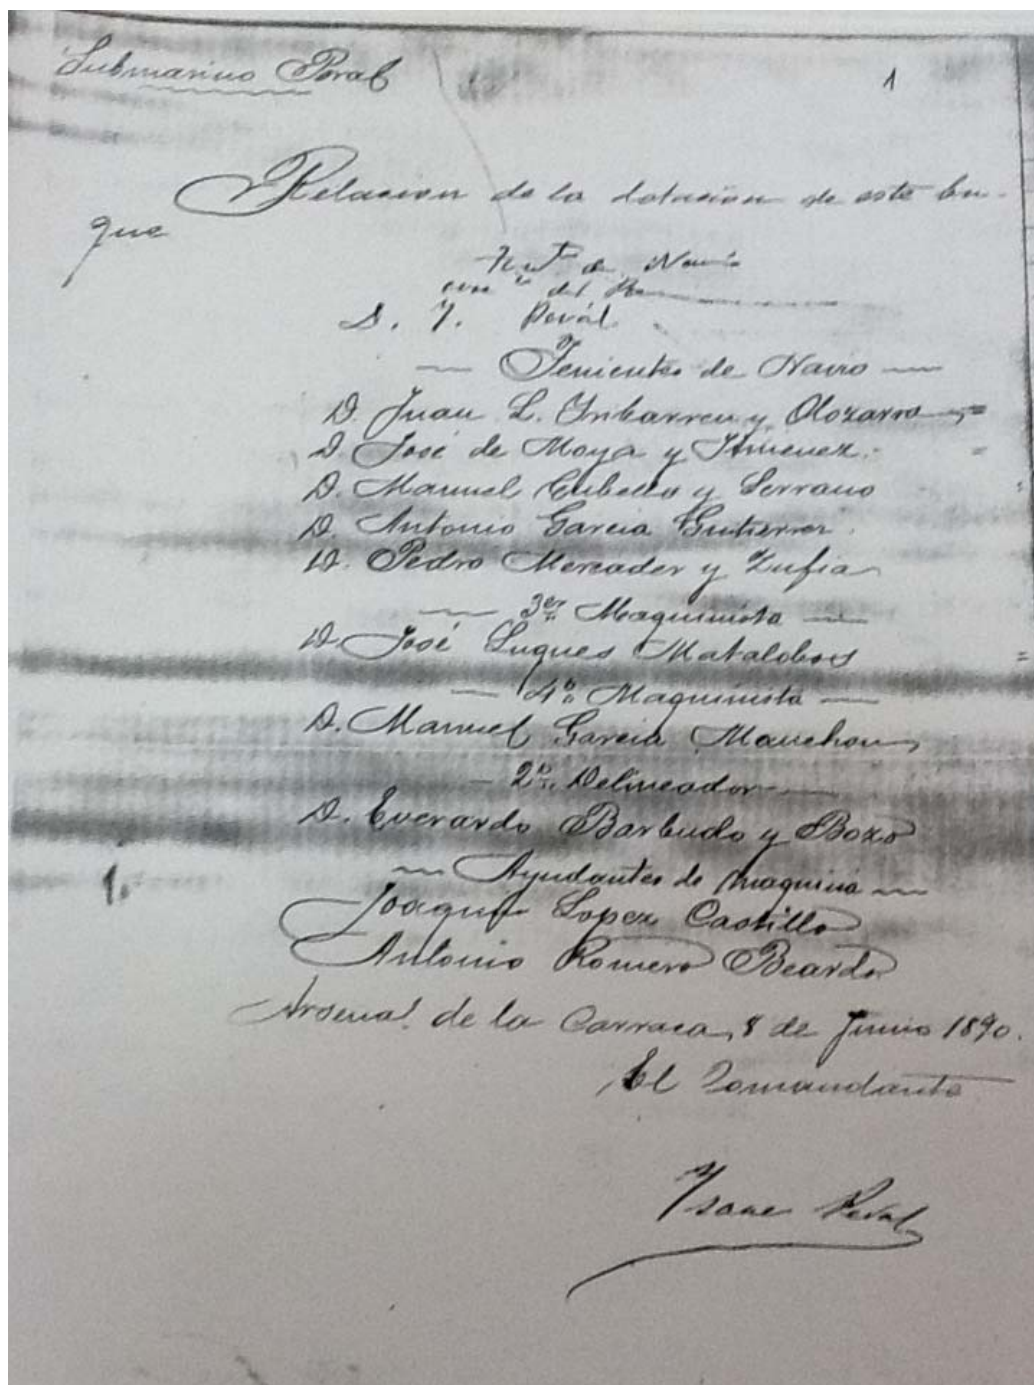 Submarino Peral
1
Relacion de la dotacion de este bu-
que
Tente de Navio
del
D. Y. Peral
Tenientes de Navio
D. Juan L. Yribarren y Olozarra
D. José de Moya y Jimenez
D. Manuel Cubello y Serrano
D. Antonio Garcia Gutierrez
D. Pedro Mercader y Zufia
3er Maquinista
D. José Luques Matalobos
4º Maquinista
D. Manuel Garcia Manchon
2º Delineador
D. Everardo Barbudo y Bozo
Ayudantes de maquina
1.
Joaquin Lopez Castillo
Antonio Romero Beardo
Arsenal de la Carraca, 8 de Junio 1890.
El Comandante
Ysaac Peral